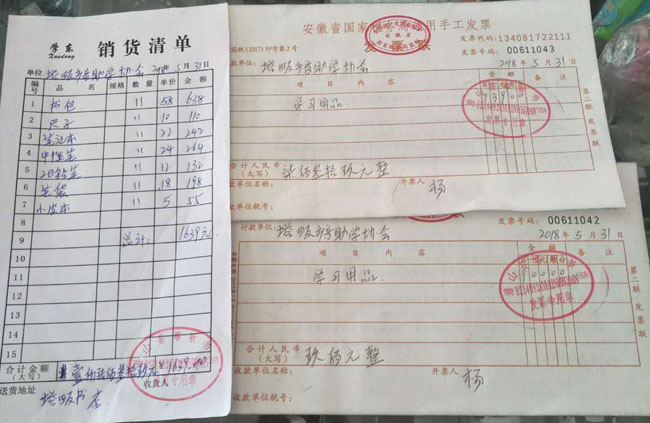 学东
Xuedong
销货清单
单位 塔畈乡育助学协会 2018年5月31日
编号 品名 规格 数量 单价 金额
1 书包 11 58 638
2 尺子 11 10 110
3 笔记本 11 22 242
4 中性笔 11 24 264
5 11 12 132
6 笔袋 11 18 198
7 小皮本 11 5 55
8
9 总计: 1639元
10
11
12
13
14
15
合计金额
(大写) 壹仟陆佰叁拾玖元 1639.00
收货人
送货地址
塔畈书店
安徽省国家税务局通用手工发票
发票联
国税(2017)印第2号
发票代码:134081722111
发票号码: 00611043
付款单位: 塔畈乡育助学协会 2018年5月31日
项目内容 金额 备注
学习用品 73900
第二联 发票联
发票专用章
合计人民币
(大写) 柒佰叁拾玖元整
收款单位名称: 开票人: 杨
收款单位税号:
发票号码: 00611042
付款单位: 塔畈乡育助学协会 2018年5月31日
项目内容 金额 备注
学习用品 90000
第二联 发票联
发票专用章
合计人民币
(大写) 玖佰元整
收款单位名称: 开票人: 杨
收款单位税号: